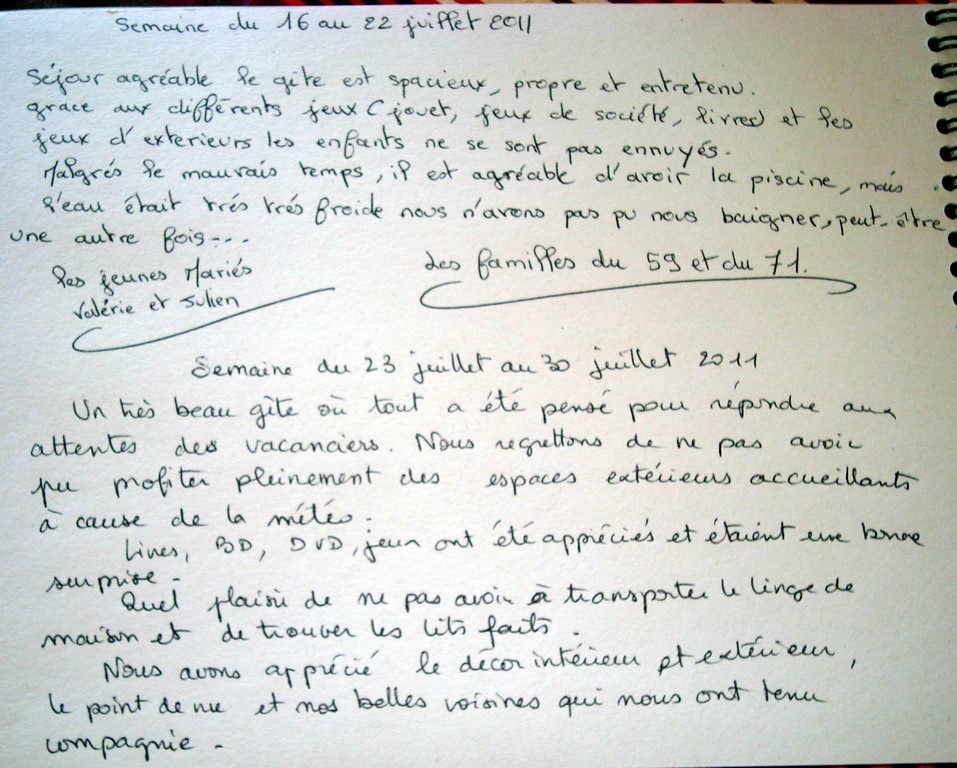 Semaine du 16 au 22 juillet 2011
Séjour agréable le gite est spacieux, propre et entretenu.
grace aux différents jeux (jouet, jeux de société, livres) et les
jeux d'exterieurs les enfants ne se sont pas ennuyés.
Malgrés le mauvais temps, il est agréable d'avoir la piscine, mais
l'eau était trés trés froide nous n'avons pas pu nous baigner, peut-être
une autre fois---
les jeunes Mariés
Valérie et Julien
Les familles du 59 et du 71.
Semaine du 23 juillet au 30 juillet 2011
Un très beau gîte où tout a été pensé pour répondre aux
attentes des vacanciers. Nous regrettons de ne pas avoir
pu profiter pleinement des espaces extérieurs accueillants
à cause de la météo.
Livres, BD, DVD, jeux ont été appréciés et étaient une bonne
surprise.
Quel plaisir de ne pas avoir à transporter le linge de
maison et de trouver les lits faits.
Nous avons apprécié le décor intérieur et extérieur,
le point de vue et nos belles voisines qui nous ont tenu
compagnie.